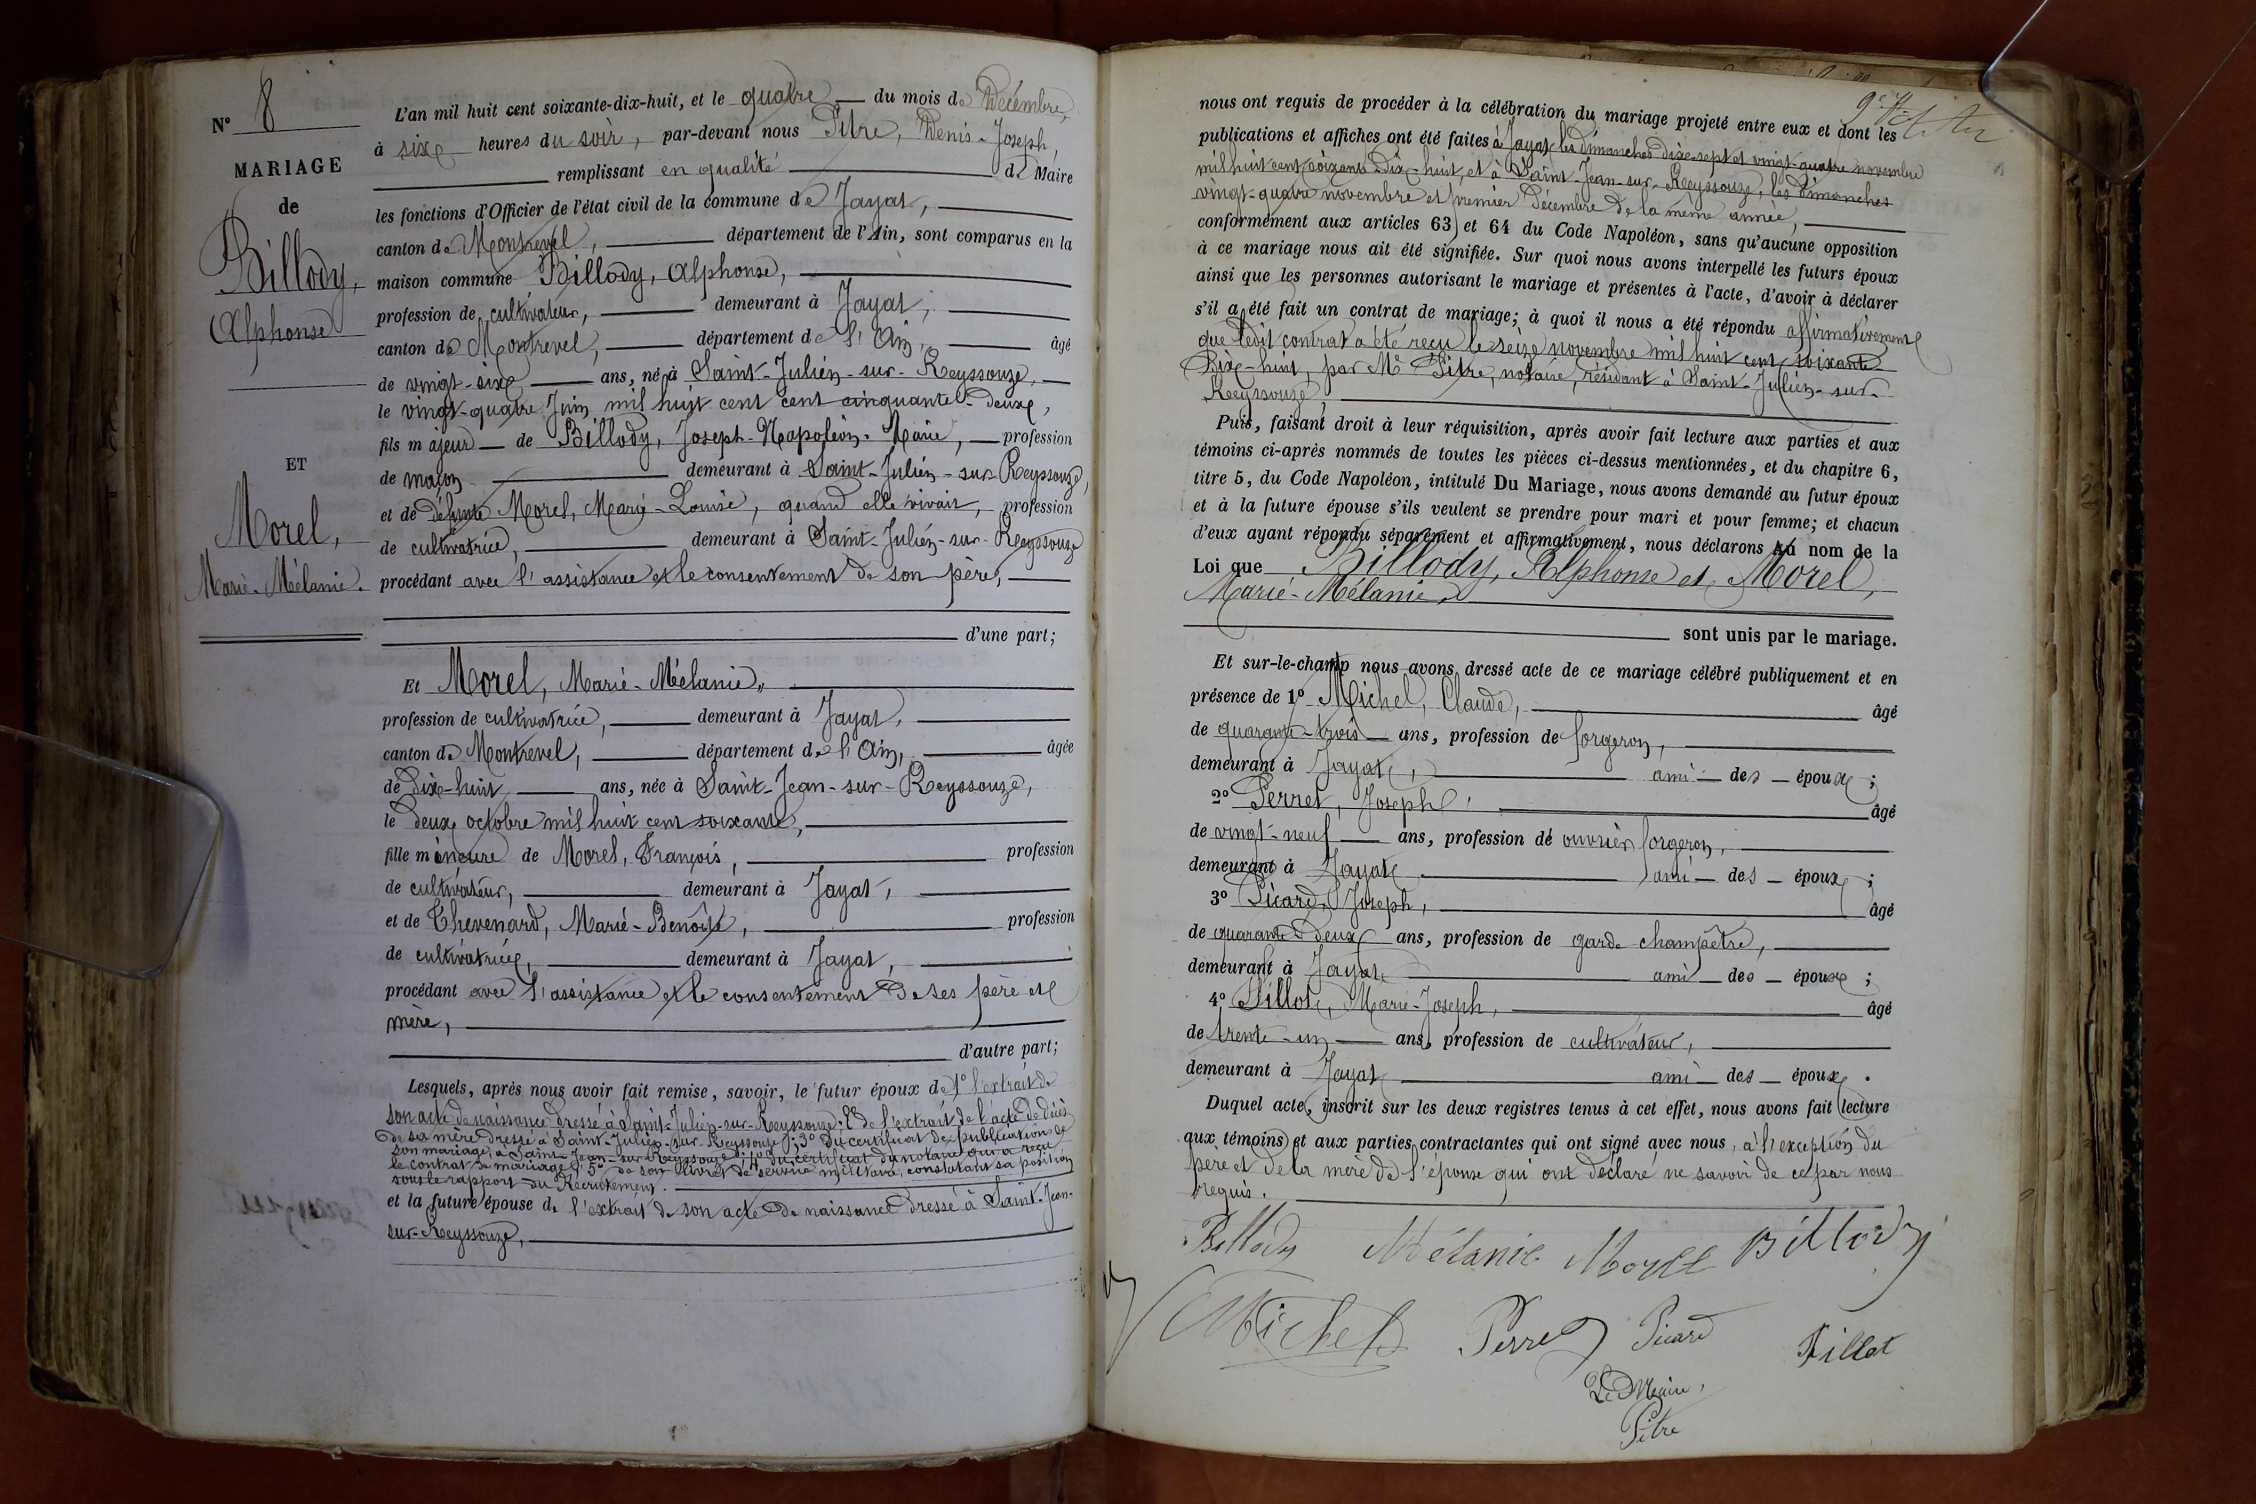 N° 8
MARIAGE
de
Billody,
Alphonse
ET
Morel,
Marie-Mélanie.
L'an mil huit cent soixante-dix-huit, et le quatre du mois de Décembre,
à six heures du soir, par-devant nous Pitre, Denis-Joseph,
remplissant en qualité de Maire
les fonctions d'Officier de l'état civil de la commune de Jayat,
canton de Montrevel, département de l'Ain, sont comparus en la
maison commune Billody, Alphonse,
profession de cultivateur, demeurant à Jayat,
canton de Montrevel, département de l'Ain, âgé
de vingt-six ans, né à Saint-Julien-sur-Reyssouze,
le vingt-quatre Juin mil huit cent cent cinquante-deux,
fils majeur de Billody, Joseph-Napoléon-Marie, profession
de maçon demeurant à Saint-Julien-sur-Reyssouze,
et de défunte Morel, Marie-Louise, quand elle vivait, profession
de cultivatrice, demeurant à Saint-Julien-sur-Reyssouze
procédant avec l'assistance et le consentement de son père,
d'une part;
Et Morel, Marie-Mélanie,
profession de cultivatrice, demeurant à Jayat,
canton de Montrevel, département de l'Ain, âgée
de Dix-huit ans, née à Saint-Jean-sur-Reyssouze,
le deux octobre mil huit cent soixante,
fille mineure de Morel, François, profession
de cultivateur, demeurant à Jayat,
et de Thevenard, Marie-Benoîte, profession
de cultivatrice, demeurant à Jayat,
procédant avec l'assistance et le consentement de ses père et
mère,
d'autre part;
Lesquels, après nous avoir fait remise, savoir, le futur époux de 1° l'extrait de
son acte de naissance dressé à Saint-Julien-sur-Reyssouze; 2° de l'extrait de l'acte de décès
de sa mère dressé à Saint-Julien-sur-Reyssouze; 3° du certificat de publication de
son mariage à Saint-Jean-sur-Reyssouze; 4° du certificat du notaire qui a reçu
le contrat de mariage; 5° de son livret de service militaire, constatant sa position
sous le rapport du Recrutement.
et la future épouse de l'extrait de son acte de naissance dressé à Saint-Jean-
sur-Reyssouze,
nous ont requis de procéder à la célébration du mariage projeté entre eux et dont les
publications et affiches ont été faites à Jayat les dimanches dix-sept et vingt-quatre novembre
mil huit cent soixante Dix-huit, et à Saint-Jean-sur-Reyssouze, les Dimanches
vingt-quatre novembre et premier Décembre de la même année,
conformément aux articles 63 et 64 du Code Napoléon, sans qu'aucune opposition
à ce mariage nous ait été signifiée. Sur quoi nous avons interpellé les futurs époux
ainsi que les personnes autorisant le mariage et présentes à l'acte, d'avoir à déclarer
s'il a été fait un contrat de mariage; à quoi il nous a été répondu affirmativement
que ledit contrat a été reçu le seize novembre mil huit cent soixante
Dix-huit, par Me Pitre, notaire, résidant à Saint-Julien-sur-
Reyssouze,
Puis, faisant droit à leur réquisition, après avoir fait lecture aux parties et aux
témoins ci-après nommés de toutes les pièces ci-dessus mentionnées, et du chapitre 6,
titre 5, du Code Napoléon, intitulé Du Mariage, nous avons demandé au futur époux
et à la future épouse s'ils veulent se prendre pour mari et pour femme; et chacun
d'eux ayant répondu séparément et affirmativement, nous déclarons au nom de la
Loi que Billody, Alphonse et Morel,
Marie-Mélanie,
sont unis par le mariage.
Et sur-le-champ nous avons dressé acte de ce mariage célébré publiquement et en
présence de 1° Michel, Claude, âgé
de quarante-trois ans, profession de forgeron,
demeurant à Jayat, ami des époux;
2° Perret, Joseph, âgé
de vingt-neuf ans, profession de ouvrier forgeron,
demeurant à Jayat ami des époux;
3° Picard, Joseph, âgé
de quarante deux ans, profession de garde champêtre,
demeurant à Jayat ami des époux;
4° Fillot, Marie-Joseph, âgé
de trente-un ans, profession de cultivateur,
demeurant à Jayat ami des époux.
Duquel acte, inscrit sur les deux registres tenus à cet effet, nous avons fait lecture
aux témoins et aux parties contractantes qui ont signé avec nous, à l'exception du
père et de la mère de l'épouse qui ont déclaré ne savoir de ce par nous
requis.
Billody Mélanie Morel Billody
Michel Perret Picard Fillot
Le Maire,
Pitre